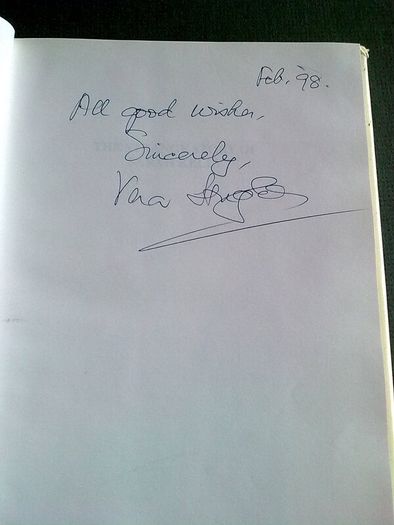 Feb. '98.
All good wishes,
Sincerely,
Vera